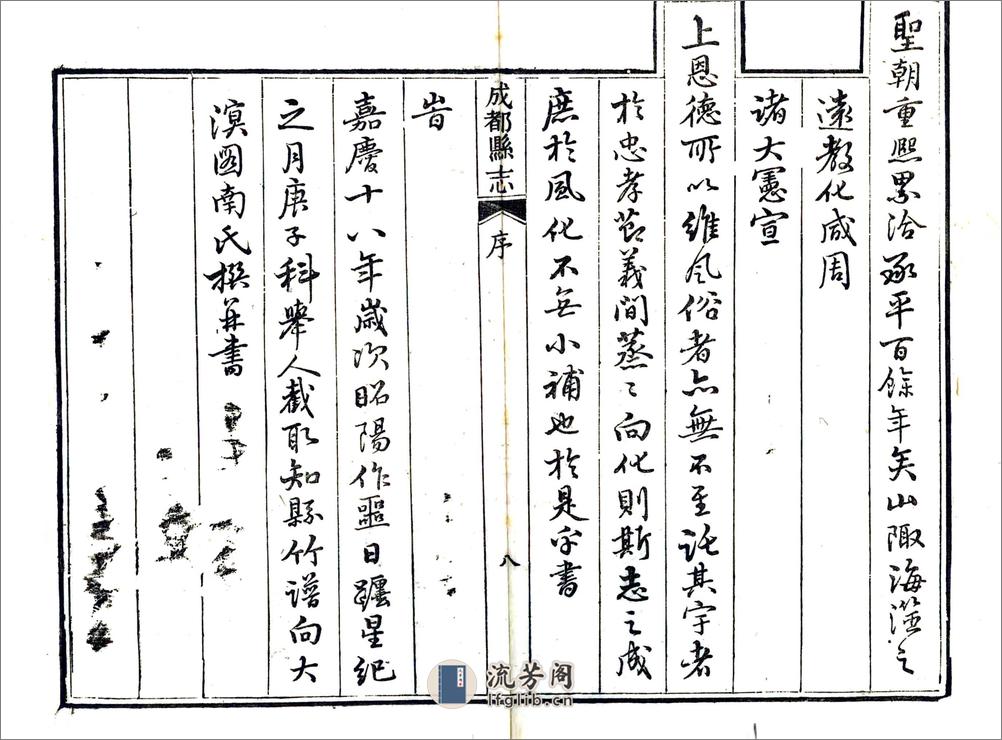 聖朝重熙累洽承平百餘年矣山陬海澨之
遠教化咸周
諸大憲宣
上恩德所以維風俗者亦無不至託其宇者
於忠孝節義間蒸〻向化則斯志之成
庶於風化不無小補也於是乎書
成都縣志
序
八
旹
嘉慶十八年歲次昭陽作噩日躔星紀
之月庚子科舉人截取知縣竹譜向大
滇圖南氏撰并書
流芳阁
lfglib.cn